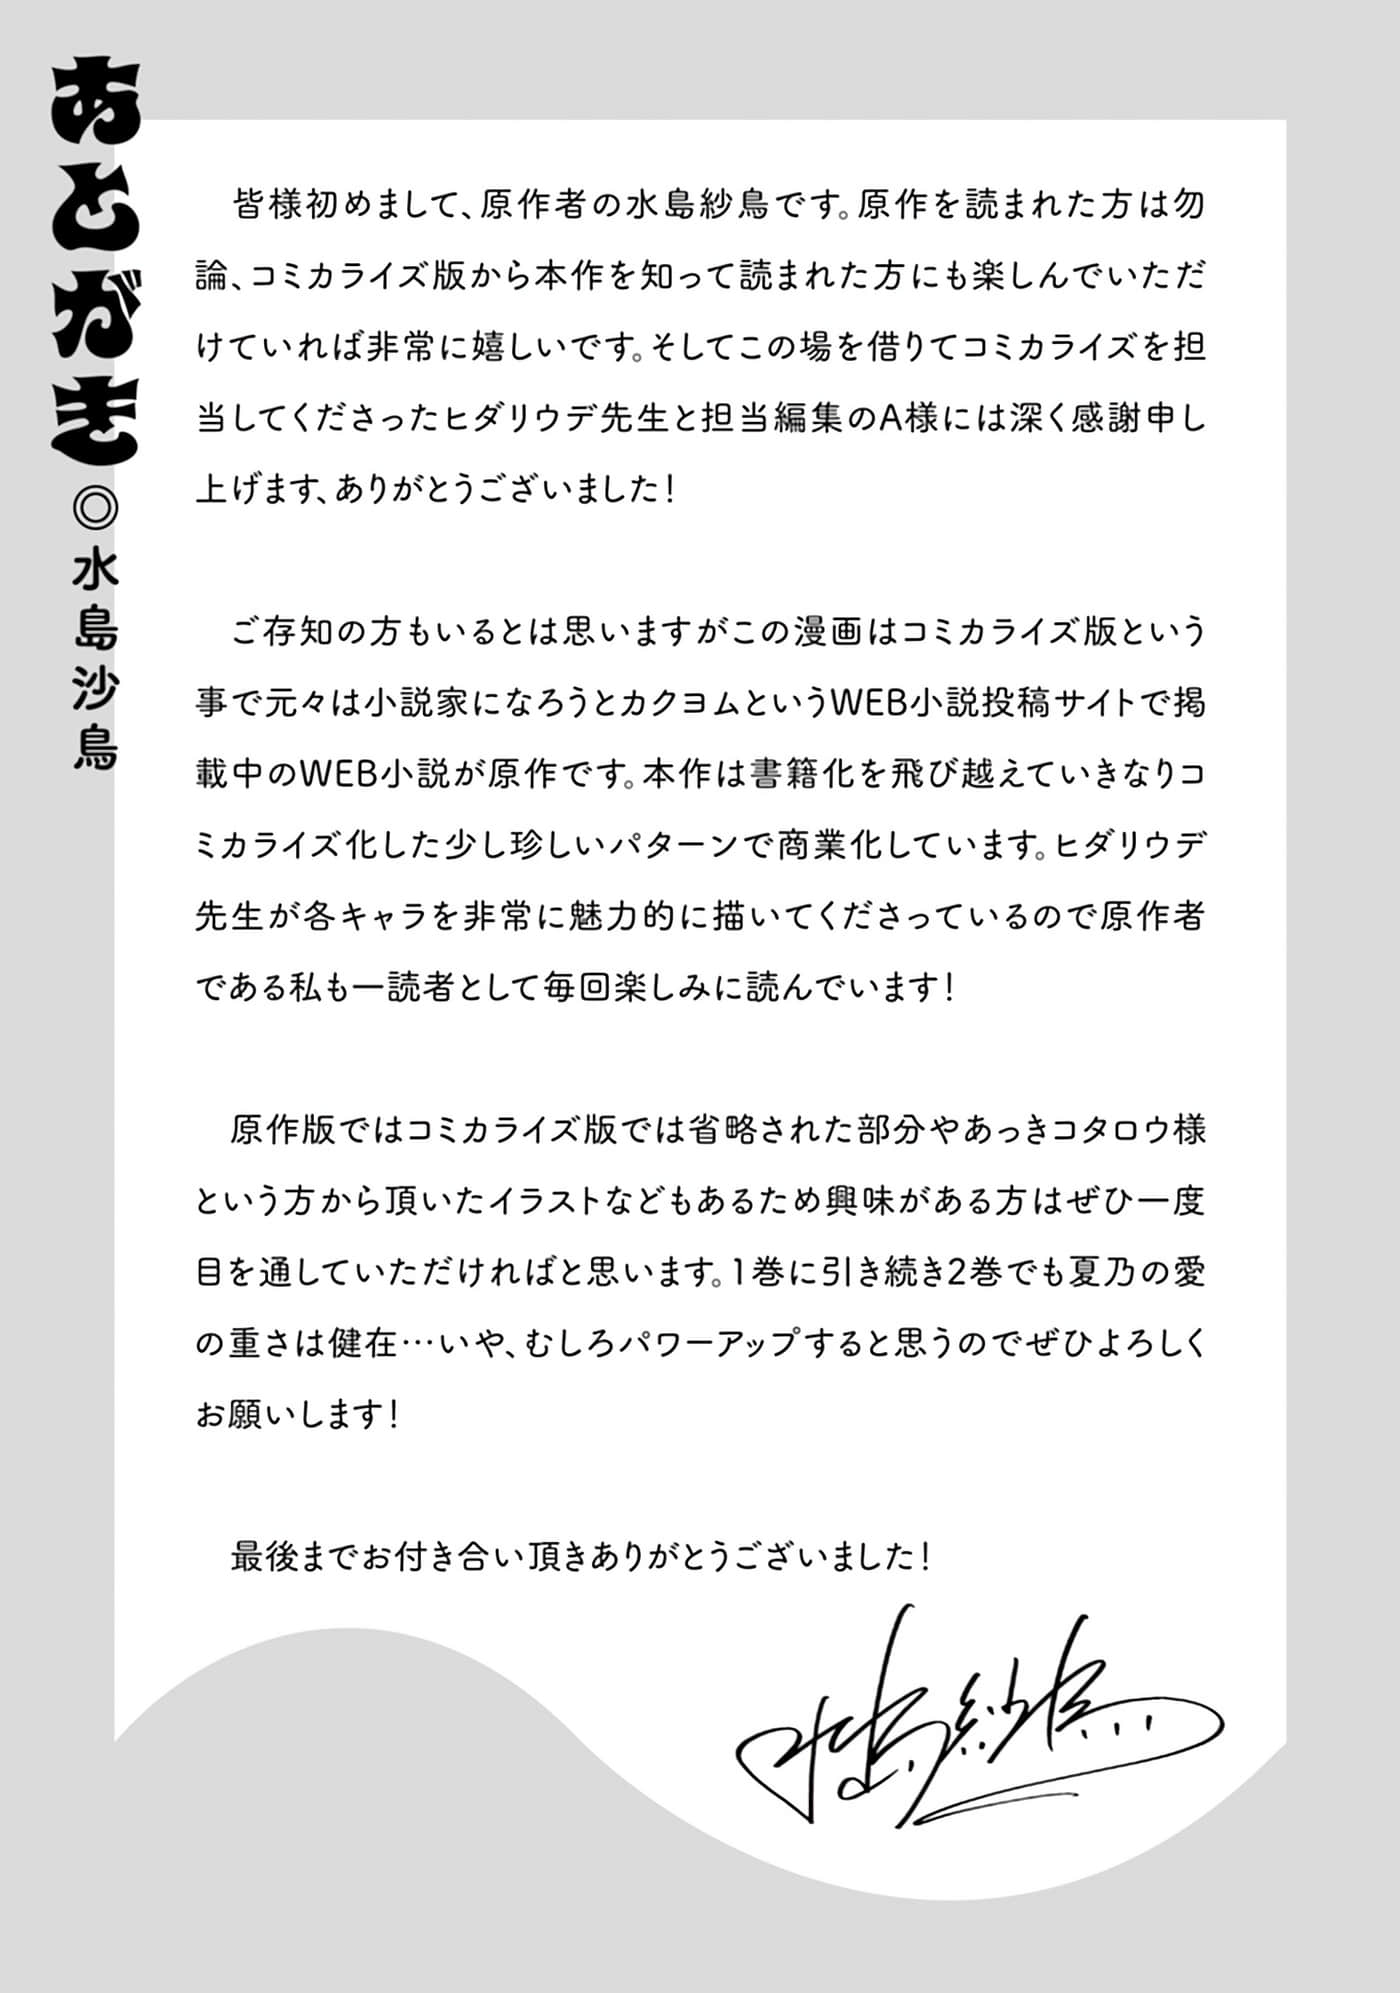 あとがき◎水島沙鳥
皆様初めまして、原作者の水島紗鳥です。原作を読まれた方は勿
論、コミカライズ版から本作を知って読まれた方にも楽しんでいただ
けていれば非常に嬉しいです。そしてこの場を借りてコミカライズを担
当してくださったヒダリウデ先生と担当編集のA様には深く感謝申し
上げます、ありがとうございました!
ご存知の方もいるとは思いますがこの漫画はコミカライズ版という
事で元々は小説家になろうとカクヨムというWEB小説投稿サイトで掲
載中のWEB小説が原作です。本作は書籍化を飛び越えていきなりコ
ミカライズ化した少し珍しいパターンで商業化しています。ヒダリウデ
先生が各キャラを非常に魅力的に描いてくださっているので原作者
である私も一読者として毎回楽しみに読んでいます!
原作版ではコミカライズ版では省略された部分やあっきコタロウ様
という方から頂いたイラストなどもあるため興味がある方はぜひ一度
目を通していただければと思います。1巻に引き続き2巻でも夏乃の愛
の重さは健在…いや、むしろパワーアップすると思うのでぜひよろしく
お願いします!
最後までお付き合い頂きありがとうございました!
水島紗鳥